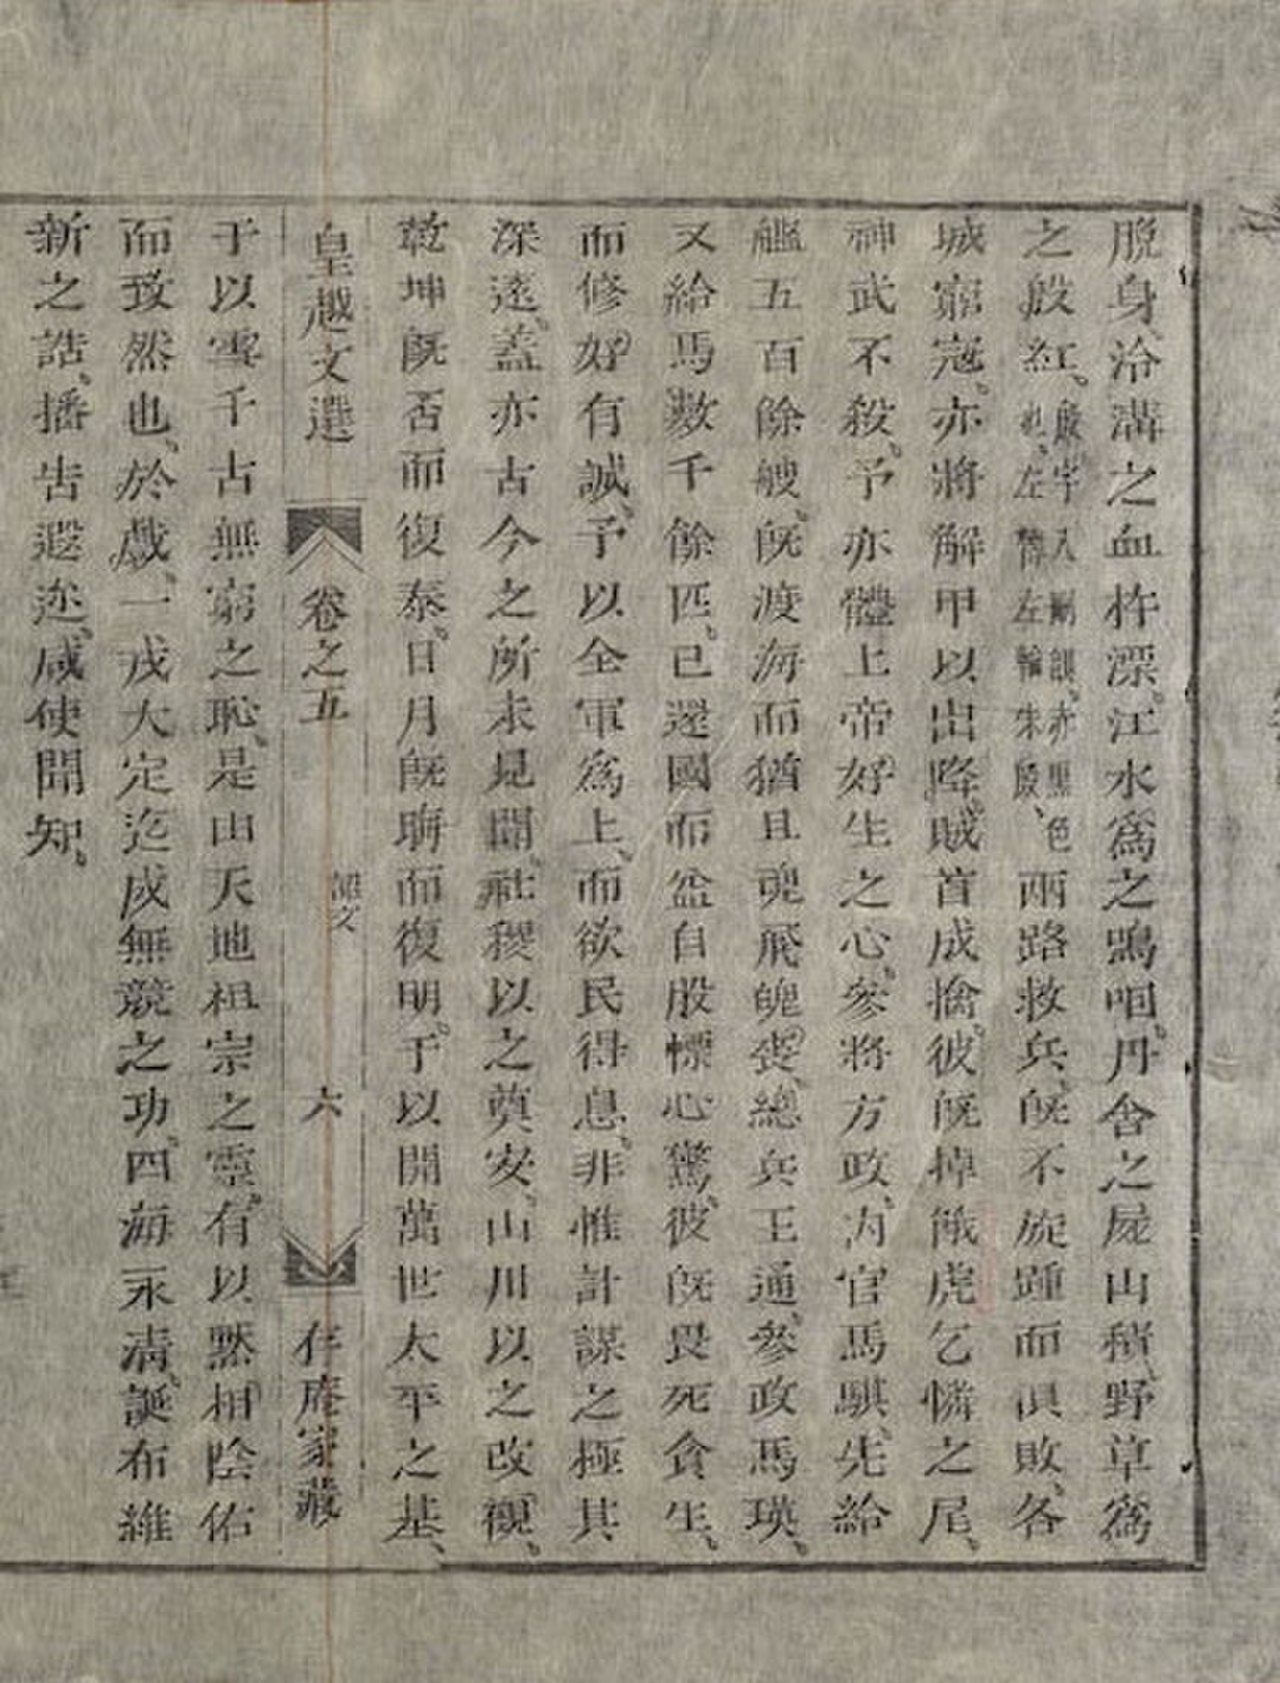 脫身、冷溝之血杵漂。江水爲之鳴咽。丹舍之屍山積、野草爲
之殷紅。殷字入刪韻。亦黑色也。左傳左輪朱殷、兩路救兵、旣不旋踵而俱敗、各
城窮寇。亦將解甲以出降。賊首成擒。彼旣掉餓虎乞憐之尾。
神武不殺。予亦體上帝好生之心。參將方政、內官馬騏、先給
艦五百餘艘。旣渡海而猶且魂飛魄喪、總兵王通、參政馬瑛。
又給馬數千餘匹。已還國而益自股慄心驚。彼旣畏死貪生。
而修好有誠、予以全軍爲上、而欲民得息。非惟計謀之極其
深遠。蓋亦古今之所未見聞。社稷以之奠安、山川以之改觀。
乾坤旣否而復泰。日月旣晦而復明。于以開萬世太平之基、
皇越文選 卷之五 詔文 六 存庵家藏
于以雪千古無窮之恥。是由天地祖宗之靈。有以默相陰佑
而致然也。於戲、一戎大定迄成無競之功。四海永淸、誕布維
新之誥。播告遐迩、咸使聞知。